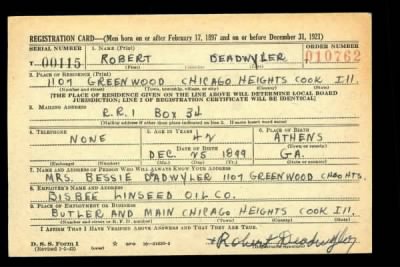 REGISTRATION CARD—(Men born on or after February 17, 1897 and on or before December 31, 1921)
SERIAL NUMBER 1. NAME (Print) ORDER NUMBER
T 00115 ROBERT DEADWYLER 010762
(First) (Last)
2. PLACE OF RESIDENCE (Print)
1107 GREENWOOD CHICAGO HEIGHTS COOK Ill.
(Number and street) (Town, township, village, or city) (County) (State)
[THE PLACE OF RESIDENCE GIVEN ON THE LINE ABOVE WILL DETERMINE LOCAL BOARD
JURISDICTION; LINE 2 OF REGISTRATION CERTIFICATE WILL BE IDENTICAL]
3. MAILING ADDRESS
R.R. 1 Box 34
[Mailing address if other than place indicated on line 2. If same insert word same]
4. TELEPHONE 5. AGE IN YEARS 6. PLACE OF BIRTH
NONE 42 ATHENS
DATE OF BIRTH (Town or county)
DEC. 25 1899 GA.
(Exchange) (Number) (Mo.) (Day) (Yr.) (State or country)
7. NAME AND ADDRESS OF PERSON WHO WILL ALWAYS KNOW YOUR ADDRESS
MRS. BESSIE DEADWYLER 1107 GREENWOOD CHGO HTS
8. EMPLOYER'S NAME AND ADDRESS
BISBEE LINSEED OIL CO.
9. PLACE OF EMPLOYMENT OR BUSINESS
BUTLER AND MAIN CHICAGO HEIGHTS COOK Ill.
(Number and street or R. F. D. number) (Town) (County) (State)
I AFFIRM THAT I HAVE VERIFIED ABOVE ANSWERS AND THAT THEY ARE TRUE.
D. S. S. Form 1
(Revised 1-1-42) (over) Robert Deadwyler